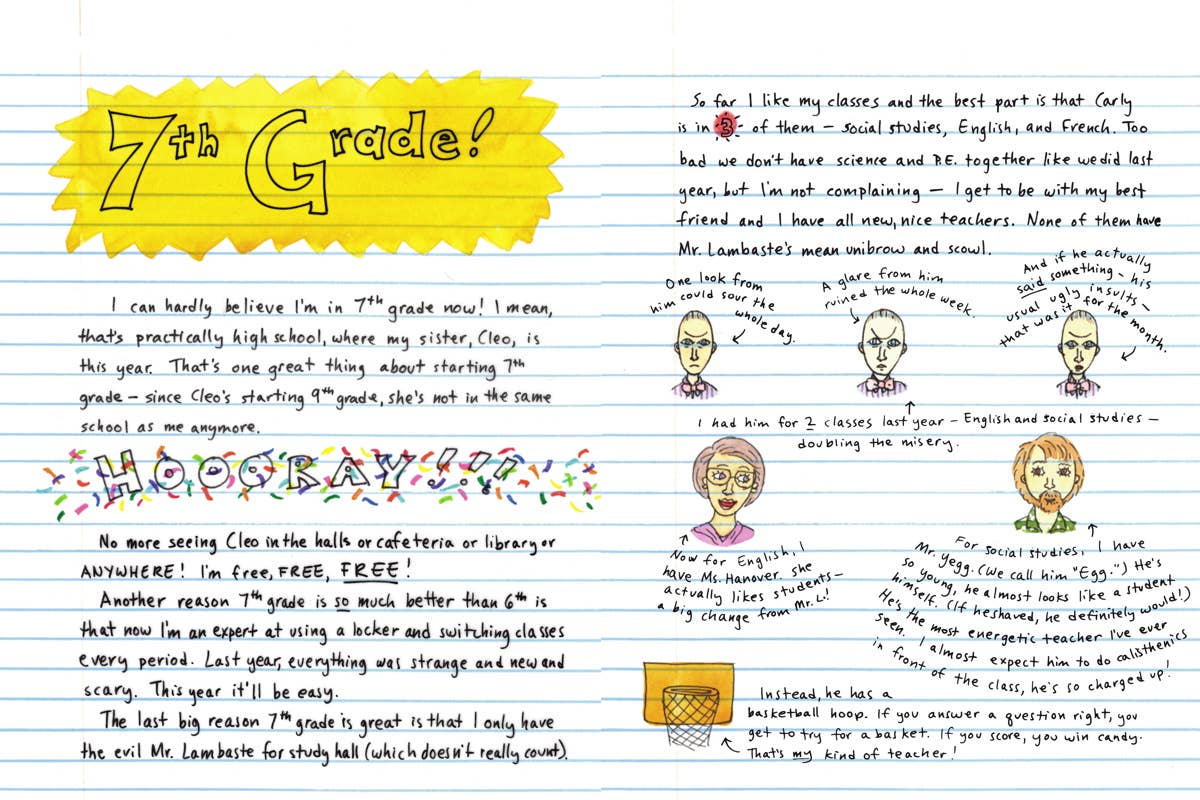 7th Grade!
I can hardly believe I'm in 7th grade now! I mean,
that's practically high school, where my sister, Cleo, is
this year. That's one great thing about starting 7th
grade – since Cleo's starting 9th grade, she's not in the same
school as me anymore.
HOOORAY!!!
No more seeing Cleo in the halls or cafeteria or library or
ANYWHERE! I'm free, FREE, FREE!
Another reason 7th grade is so much better than 6th is
that now I'm an expert at using a locker and switching classes
every period. Last year, everything was strange and new and
scary. This year it'll be easy.
The last big reason 7th grade is great is that I only have
the evil Mr. Lambaste for study hall (which doesn't really count).
So far I like my classes and the best part is that Carly
is in 3 of them – social studies, English, and French. Too
bad we don't have science and P.E. together like we did last
year, but I'm not complaining – I get to be with my best
friend and I have all new, nice teachers. None of them have
Mr. Lambaste's mean unibrow and scowl.
One look from
him could sour the
whole day.
A glare from him
ruined the whole week.
And if he actually
said something – his
usual ugly insults –
that was it for the month.
I had him for 2 classes last year – English and social studies –
doubling the misery.
Now for English, I
have Ms. Hanover. She
actually likes students –
a big change from Mr. L!
For social studies, I have
Mr. Yegg. (We call him "Egg.") He's
so young, he almost looks like a student
himself. (If he shaved, he definitely would!)
He's the most energetic teacher I've ever
seen. I almost expect him to do calisthenics
in front of the class, he's so charged up!
Instead, he has a
basketball hoop. If you answer a question right, you
get to try for a basket. If you score, you win candy.
That's my kind of teacher!